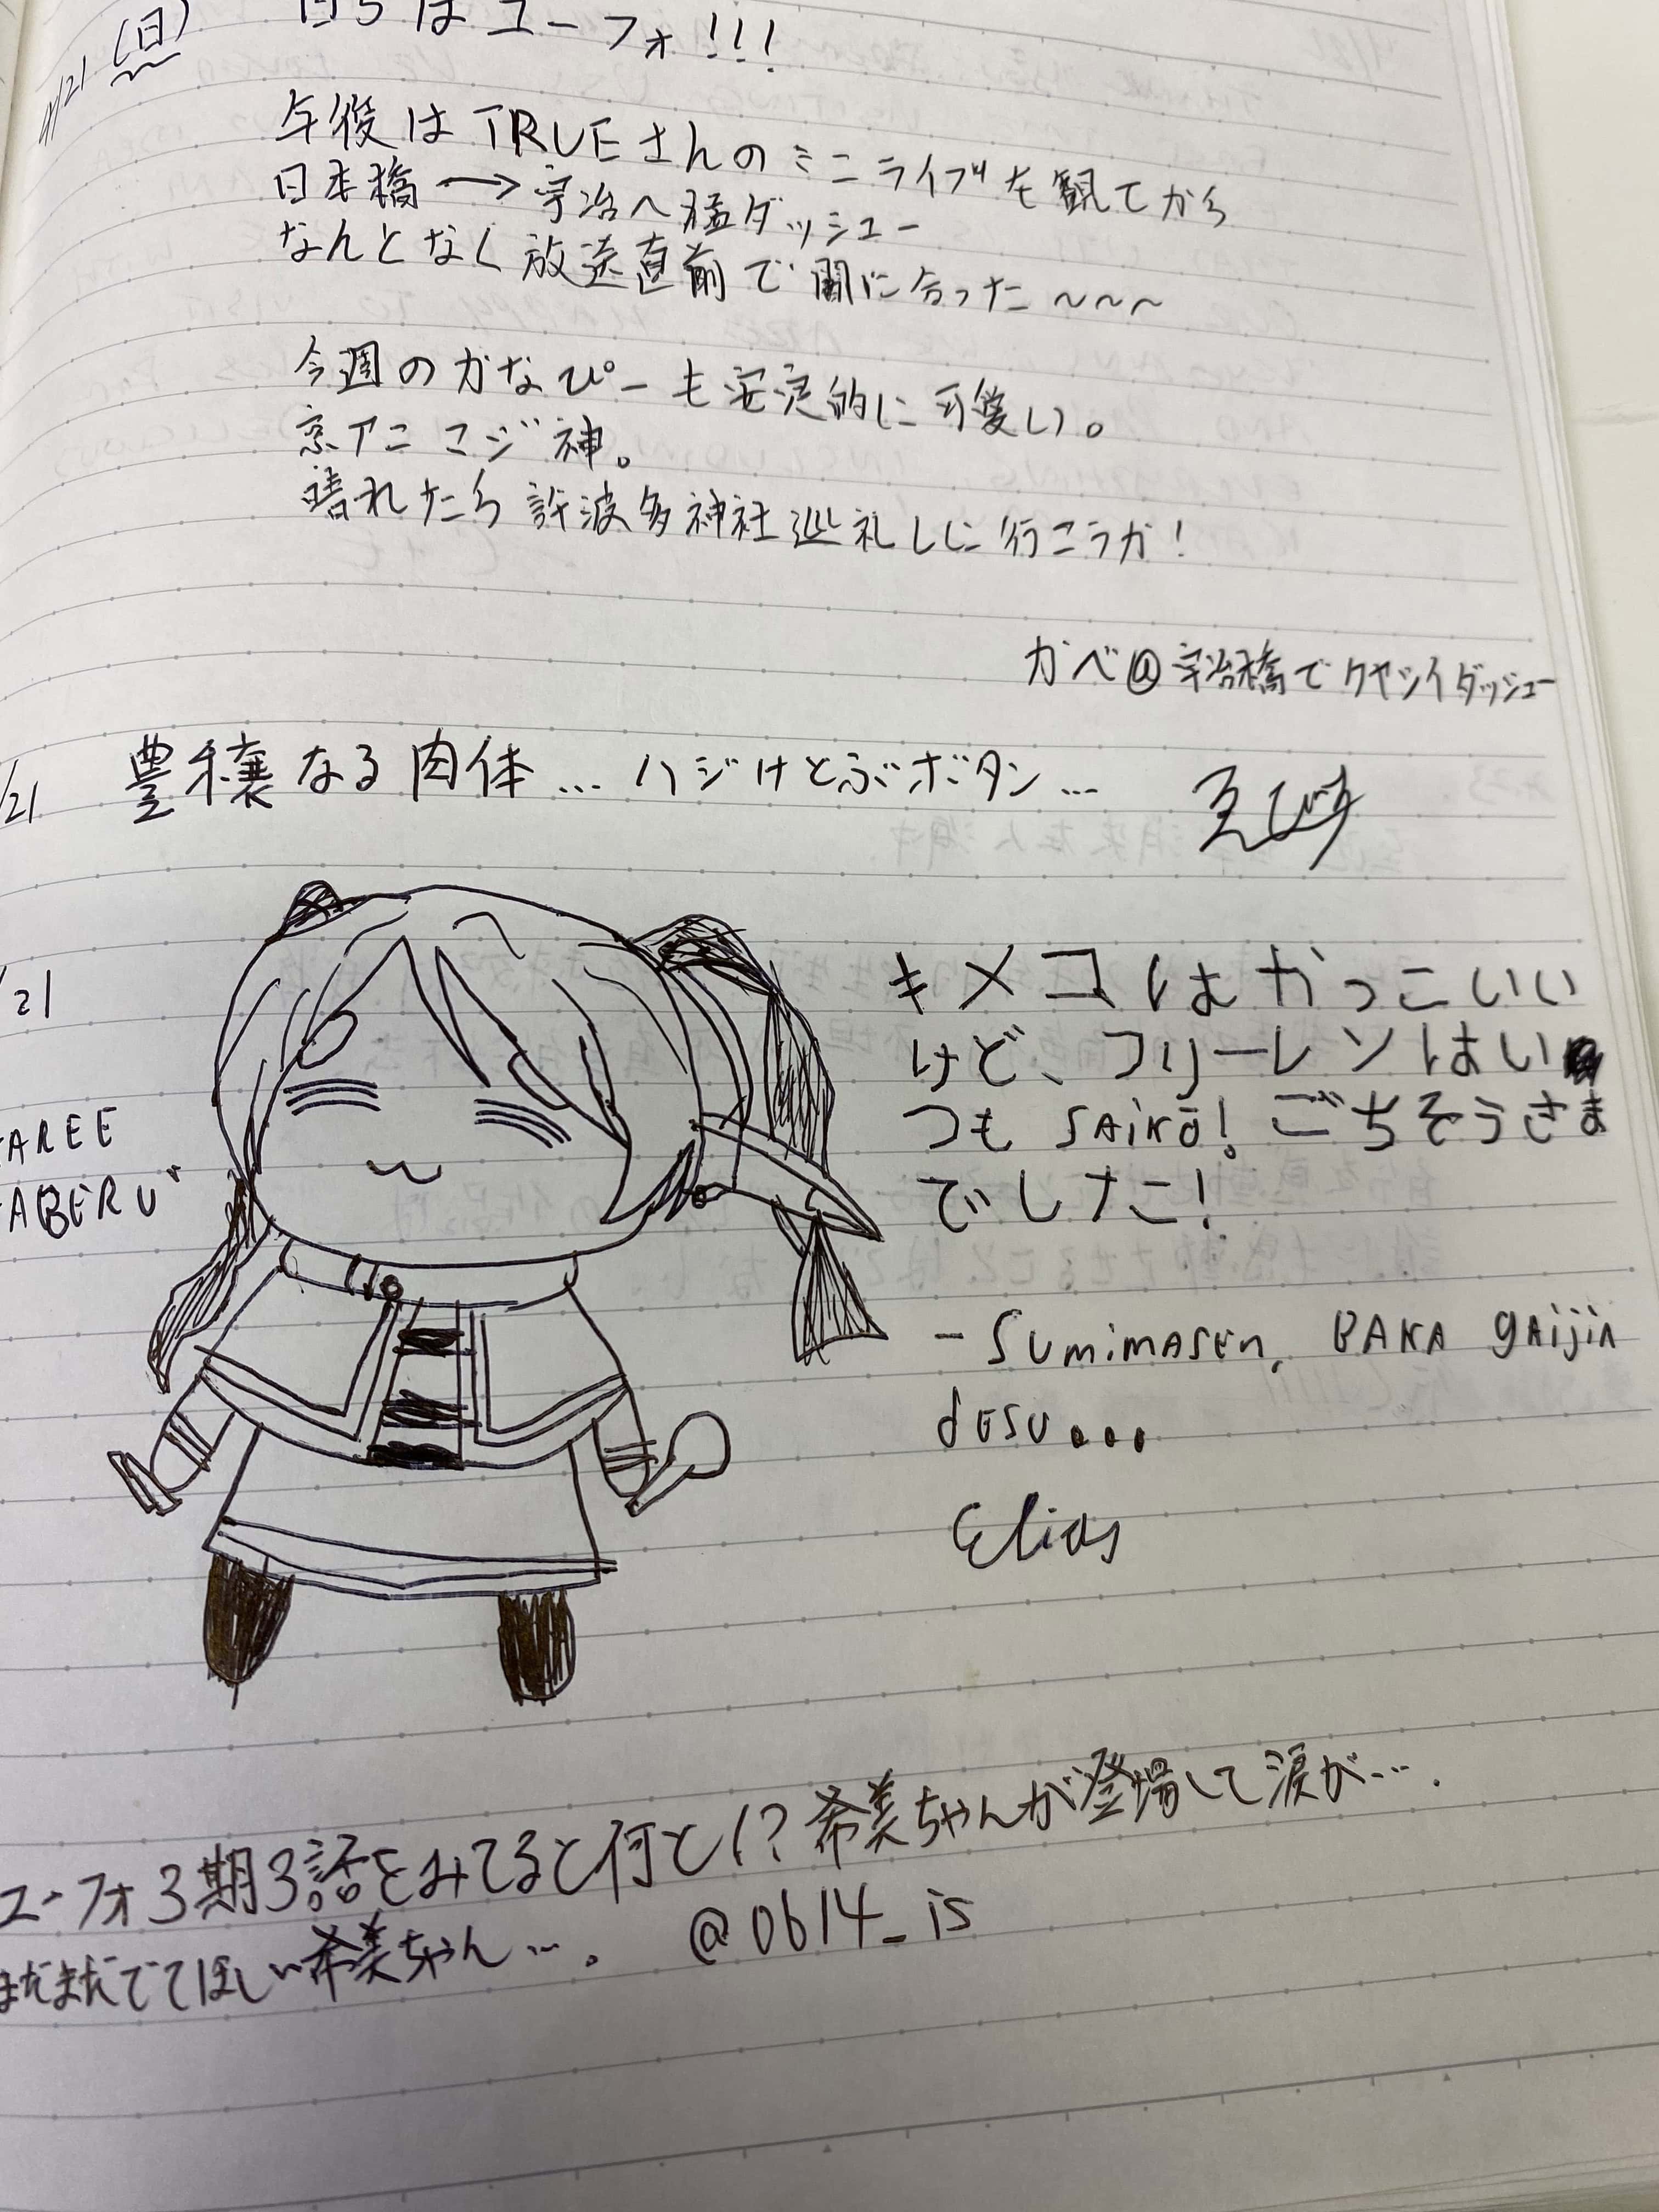 4/21 (日)
はユーフォ!!!
午後はTRUEさんのミニライブを観てから
日本橋→宇治へ猛ダッシュー
なんとなく放送直前で間に合った〜〜〜
今週のかなぴーも安定的に可愛い。
京アニマジ神。
晴れたら許波多神社巡礼しに行こうか!
かべ@宇治橋でクヤシイダッシュー
/21 豊穣なる肉体…ハジけとぶボタン…
/21
キメコはかっこいい
けど、フリーレンはい
つも SAiKō! ごちそうさま
でした!
AREE
ABERU"
- SUMiMASEn, BAKA gAijin
dESU...
Elias
ユーフォ3期3話をみてると何と!?希美ちゃんが登場して涙が….
まだまだでてほしい希美ちゃん…. @0614_is